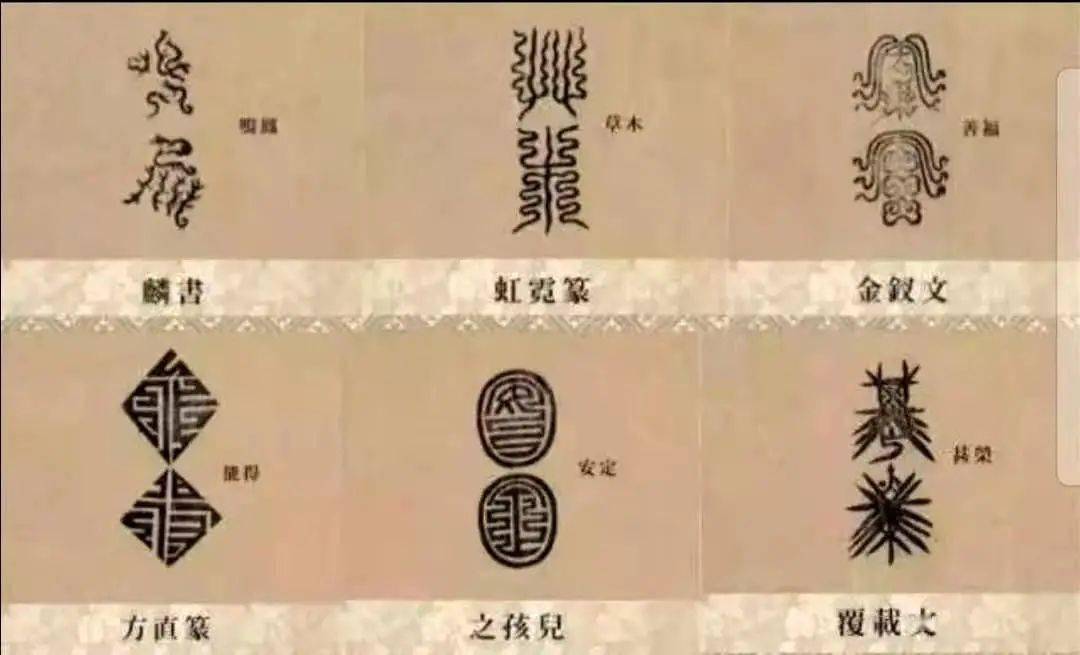 鳴鳳
草木
善福
麟書
虹霓篆
金釵文
能得
安定
甚榮
方直篆
之孩兒
覆載文